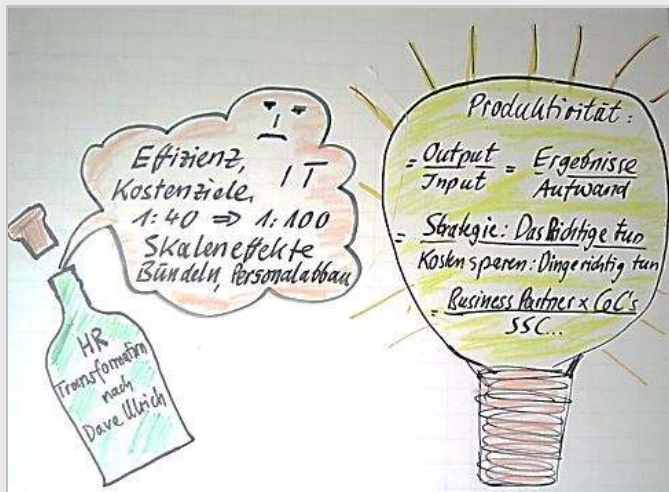 Effizienz,
Kostenziele,
IT
1:40 ⇒ 1:100
Skaleneffekte
Bündeln, Personalabbau
HR
Transformation
nach
Dave Ulrich
Produktivität:
= Output / Input = Ergebnisse / Aufwand
= Strategie: Das Richtige tun
Kosten sparen: Dinge richtig tun
= Business Partner x CoC's
SSC...